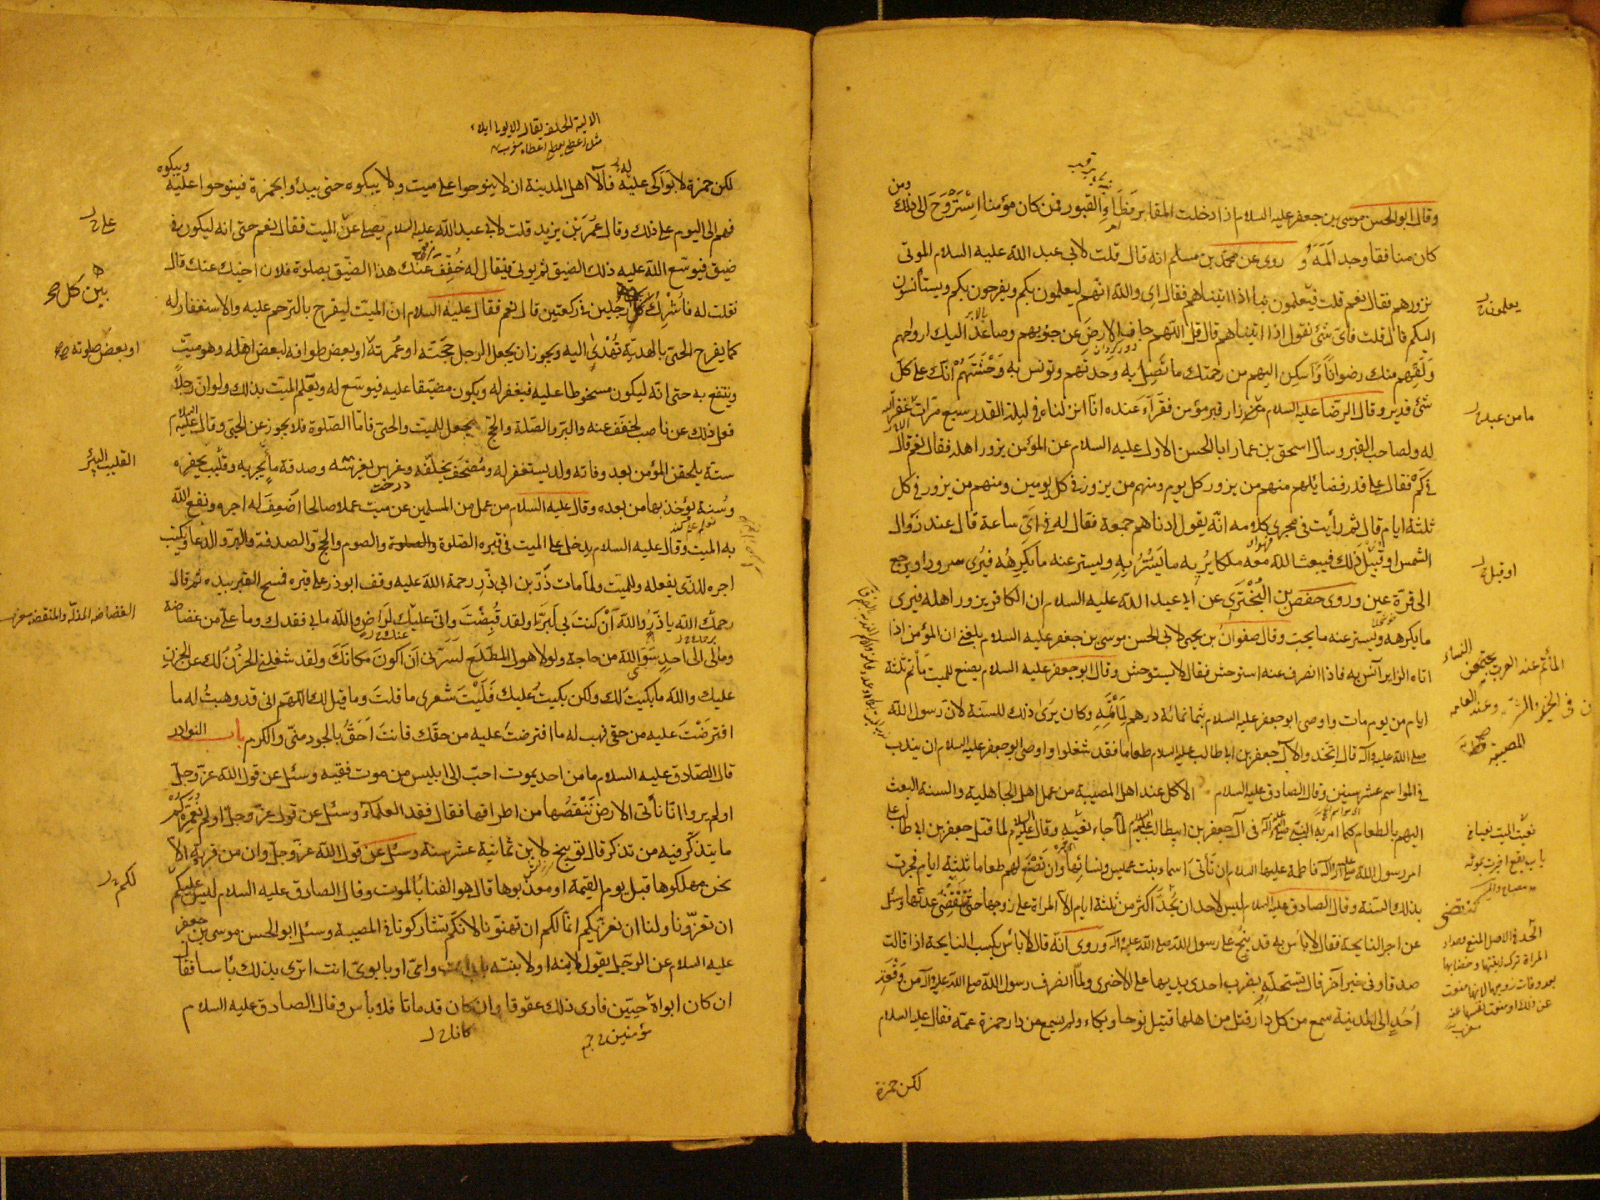 وقال ابو الحسن موسى بن جعفر عليه السلام اذا دخلت المقابر فطأ القبور فمن كان مؤمنا استروح الى ذلك ومن
كان منافقا وجد المه وروى عن محمد بن مسلم انه قال قلت لابي عبد الله عليه السلام الموتى
نزورهم فقال نعم قلت فيعلمون بنا اذا اتيناهم فقال اى والله انهم ليعلمون بكم ويفرحون بكم ويستأنسون
اليكم قال قلت فاى شئ نقول اذا اتيناهم قال قل اللهم جاف الارض عن جنوبهم وصاعد اليك ارواحهم
ولقهم منك رضوانا واسكن اليهم من رحمتك ما تصل به وحدتهم وتونس به وحشتهم انك على كل
شئ قدير وقال الرضا عليه السلام من زار قبر مؤمن فقرأ عنده انا انزلناه فى ليلة القدر سبع مرات غفر الله
له ولصاحب القبر وسأل اسحق بن عمار ابا الحسن الاول عليه السلام عن المؤمن يزور اهله فقال نعم قال
فى كم فقال على قدر فضايلهم منهم من يزور كل يوم ومنهم من يزور فى كل يومين ومنهم من يزور فى كل
ثلثة ايام قال ثم رأيت فى مجرى كلامه انه يقول ادناهم جمعة فقال له فى اى ساعة قال عند زوال
الشمس او قبيل ذلك فيبعث الله معه ملكا يريه ما يسر به ويستر عنه ما يكرهه فيرى سرورا ويرجع
الى قرة عين وروى حفص بن البخترى عن ابى عبد الله عليه السلام ان الكافر يزور اهله فيرى
ما يكرهه ويستر عنه ما يحب وقال صفوان بن يحيى لابى الحسن موسى بن جعفر عليه السلام بلغنى ان المؤمن اذا
اتاه الزاير آنس به فاذا انصرف عنه استوحش فقال لا يستوحش وقال ابو جعفر عليه السلام يصنع للميت مأتم ثلثة
ايام من يوم مات واوصى ابو جعفر عليه السلام بثمانمائة درهم لمأتمه وكان يرى ذلك للسنة لان رسول الله
صلى الله عليه وآله قال اتخذوا لآل جعفر بن ابى طالب عليه السلام طعاما فقد شغلوا واوصى ابو جعفر عليه السلام ان يندب
فى المواسم عشر سنين وقال الصادق عليه السلام الاكل عند اهل المصيبة من عمل اهل الجاهلية والسنة البعث
اليهم بالطعام كما امر به النبى صلى الله عليه وآله فى آل جعفر بن ابيطالب عليه السلام لما جاء نعيه وقال عليه السلام لما قتل جعفر بن ابى طالب
امر رسول الله صلى الله عليه وآله فاطمة عليها السلام ان تأتى اسماء بنت عميس ونسائها وان تصنع لهم طعاما ثلثة ايام فجرت
بذلك السنة وقال الصادق عليه السلام ليس لاحد ان يحد اكثر من ثلثة ايام الا المرأة على زوجها حتى تنقضى عدتها وسئل
عن اجر النايحة فقال لا بأس به قد نيح على رسول الله صلى الله عليه وآله وروى انه قال لا بأس بكسب النايحة اذا قالت
صدقا وفى خبر آخر قال تستحله بضرب احدى يديها على الاخرى ولما انصرف رسول الله صلى الله عليه وآله من وقعة
احد الى المدينة سمع من كل دار قتل من اهلها قتيل نوحا وبكاء ولم يسمع من دار حمزة عمه فقال عليه السلام
لكن حمزة
يعلمون
ما من عبد
او قبل
المأتم عند العرب يجتمعن النساء
فى الخير والشر وعند العامه
المصيبة
الالية الحلف يقال الى يولى ايلاء
مثل اعطى يعطى اعطاء مغرب
لكن حمزة لا بواكى عليه فآلا اهل المدينة ان لا ينوحوا على ميت ولا يبكوه حتى يبدؤ بحمزة فينوحوا عليه ويبكوه
فهم الى اليوم على ذلك وقال عمر بن يزيد قلت لابى عبد الله عليه السلام يصلى عن الميت فقال نعم حتى انه ليكون فى
ضيق فيوسع الله عليه ذلك الضيق ثم يوتى فيقال له خفف عنك هذا الضيق بصلوة فلان اخيك عنك قال
فقلت له فاشرك كل رجلين فى ركعتين قال نعم فقال عليه السلام ان الميت ليفرح بالترحم عليه والاستغفار له
كما يفرح الحى بالهدية تهدى اليه ويجوز ان يجعل الرجل حجته او عمرته او بعض طوافه لبعض اهله وهو ميت
وينتفع به حتى انه ليكون مسخوطا عليه فيغفر له ويكون مضيقا عليه فيوسع له ويعلم الميت بذلك ولو ان رجلا
فعل ذلك عن ناصب لخفف عنه والبر والصلة والحج يجعل للميت والحى فاما الصلوة فلا يجوز عن الحى وقال عليه السلم
ستة يلحقن المؤمن بعد وفاته ولد يستغفر له ومصحف يخلفه وغرس يغرسه وصدقة ماء يجريه وقليب يحفره
وسنة يؤخذ بها من بعده وقال عليه السلام من عمل من المسلمين عن ميت عملا صالحا اضعف له اجره ونفع الله
به الميت وقال عليه السلام يدخل على الميت فى قبره الصلوة والصوم والحج والصدقة والبر والدعاء ويكتب
اجره للذى يفعله وللميت ولما مات ذر بن ابى ذر رحمة الله عليه وقف ابوذر على قبره فمسح القبر بيده ثم قال
رحمك الله يا ذر والله ان كنت بى لبرا ولقد قبضت وانى عنك لراض والله ما بى فقدك وما على من غضاضة
ومالى الى احد سوى الله من حاجة ولولا هول المطلع لسرنى ان اكون مكانك ولقد شغلنى الحزن لك عن الحزن
عليك والله ما بكيت لك ولكن بكيت عليك فليت شعرى ما قلت وما قيل لك اللهم انى قد وهبت له ما
افترضت عليه من حقى فهب له ما افترضت عليه من حقك فانت احق بالجود منى والكرم باب النوادر
قال الصادق عليه السلام ما من احد يموت احب الى ابليس من موت فقيه وسئل عن قول الله عز وجل
اولم يروا انا نأتى الارض ننقصها من اطرافها فقال فقد العلماء وسئل عن قول عز وجل اولم نعمركم
ما يتذكر فيه من تذكر قال توبيخ لابن ثمانية عشر سنة وسئل عن قول الله عز وجل وان من قرية الا
نحن مهلكوها قبل يوم القيمة او معذبوها قال هو الفناء بالموت وقال الصادق عليه السلام ليس عليكم
ان تعزونا ولنا ان نعزيكم انما لكم ان تهنونا لانكم تشاركونا فى المصيبة وسئل ابو الحسن موسى بن جعفر
عليه السلام عن الرجل يقول لابنه او لابنته بابى انت وامى او بابوى انت اترى بذلك بأسا فقال
ان كان ابواه حيين فارى ذلك عقوقا وان كان قد ماتا فلا بأس وقال الصادق عليه السلام
مؤمنين
كانا
على
بين كل
او بعض صلوته
القليب البئر
لكم